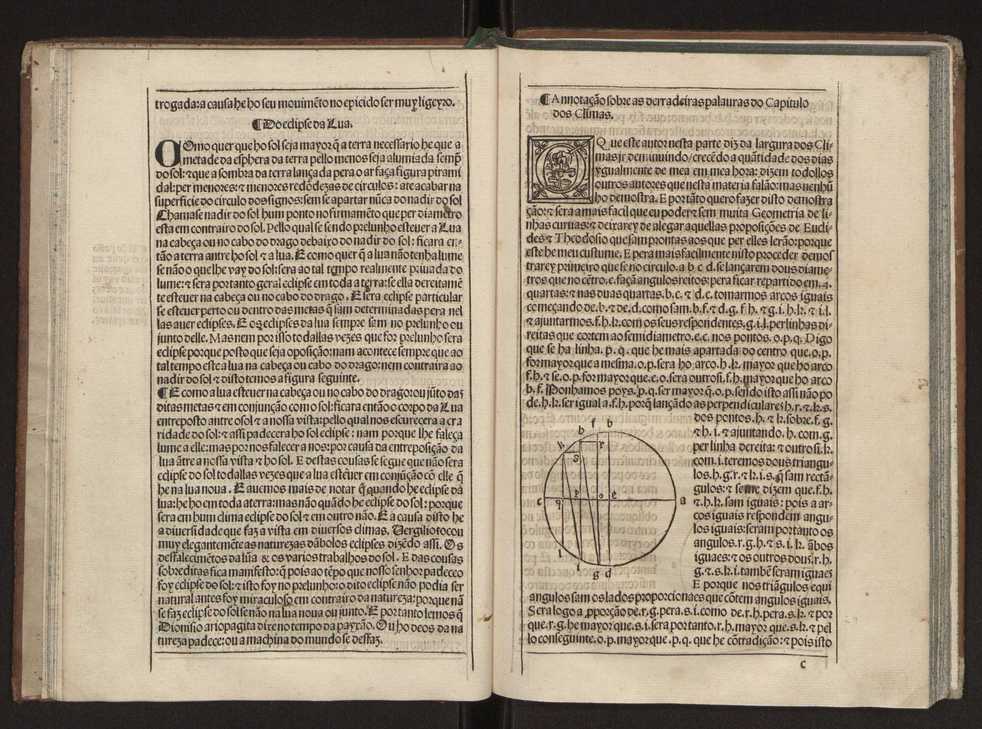 trogada: a causa he ho seu mouimẽto no epiciclo ser muy ligeyro.
¶ Do eclipse da Lua.
COmo quer que ho sol seja mayor q̃ a terra necessario he que a
metade da esphera da terra pello menos seja alumiada semp̃
do sol: ⁊ que a sombra da terra lançada pera o ar faça figura pirami
dal: per menores: ⁊ menores redõdezas de circulos: ate acabar na
superficie do circulo dos signos: sem se apartar nũca do nadir do sol
Chamase nadir do sol hum ponto no firmamẽto que per diametro
esta em contrairo do sol. Pello qual se sendo prelunho esteuer a Lua
na cabeça ou no cabo do drago debaixo do nadir do sol: ficara en:
tão a terra antre ho sol ⁊ a lua. E como quer q̃ a lua não tenha lume
se não o que lhe vay do sol: sera ao tal tempo realmente priuada do
lume: ⁊ sera portanto geral eclipse em toda a terra: se ella dereitamẽ
te esteuer na cabeça ou no cabo do drago. E sera eclipse particular
se esteuer perto ou dentro das metas q̃ sam determinadas pera nel
las auer eclipses. E os eclipses da lua sempre sem no prelunho ou
junto delle. Mas nem por isso todallas vezes que for prelunho sera
eclipse porque posto que seja oposição: nam acontece sempre que ao
tal tempo este a lua na cabeça ou cabo do drago: nem contraira ao
nadir do sol ⁊ disto temos a figura seguinte.
¶ E como a lua esteuer na cabeça ou no cabo do drago: ou jũto das
ditas metas ⁊ em conjunção com o sol: ficara então o corpo da Lua
entreposto antre o sol ⁊ a nossa vista: pello qual nos escurecera a cra
ridade do sol: ⁊ assi padecera ho sol eclipse: nam porque lhe faleça
lume a elle: mas por nos falecer a nos: por causa da entreposição da
lua ãtre a nossa vista ⁊ ho sol. E destas cousas se segue que não sera
eclipse do sol todallas vezes que a lua esteuer em cõjunção cõ elle q̃
he na lua noua. E auemos mais de notar q̃ quando he eclipse da
lua: he ho em toda a terra: mas não quãdo he eclipse do sol: porque
sera em hum clima eclipse do sol: ⁊ em outro não. E a causa disto he
a diuersidade que faz a vista em diuersos climas. Vergilio tocou
muy elegantemẽte as naturezas dãbolos eclipses dizẽdo assi. Os
desfalecimẽtos da lũa & os varios trabalhos do sol. E das cousas
sobreditas fica manifesto: q̃ pois ao tẽpo que nosso senhor padeceo
foy eclipse do sol: ⁊ isto foy no prelunho o dito eclipse não podia ser
natural antes foy miraculoso em contrairo da natureza: porque nã
se faz eclipse do sol se não na lua noua ou junto. E portanto lemos q̃
Dionisio ariopagita dixe no tempo da payxão. Ou ho deos da na
tureza padece: ou a machina do mundo se desfaz.
¶ Annotação sobre as derradeiras palauras do Capitulo
dos Climas.
O Que este autor nesta parte diz da largura dos Cli-
mas jr deminuindo / crecẽdo a quãtidade dos dias
ygualmente de mea em mea hora: dizem todollos
outros autores que nesta materia falão: mas nenhũ
ho demostra. E portãto quero fazer disto demostra
ção: ⁊ sera a mais facil que eu poder ⁊ sem muita Geometria de li-
nhas curuas: ⁊ deixarey de alegar aquellas proposições de Eucli-
des ⁊ Theodosio que sam prontas aos que per elles lerão: porque
este he meu custume. E pera mais facilmente nisto proceder demos
trarey primeiro que se no circulo. a b c d. se lançarem dous diame-
tros que no cẽtro. e. façã angulos reitos: pera ficar repartido em. 4.
quartas: ⁊ nas duas quartas. b. c. ⁊ d. c. tomarmos arcos iguais
começando de. b. ⁊ de. d. como sam. b. f. ⁊ d. g. f. h. ⁊ g. i. h. k. ⁊ i. l.
⁊ ajuntarmos. f. h. k. com os seus respondentes. g. i. l. per linhas di-
reitas que cortem ao semidiametro. e. c. nos pontos. o. p. q. Digo
que se ha linha. p. q. que he mais apartada do centro que. o. p.
for mayor que a mesma. o. p. sera ho arco. h. k. mayor que ho arco
f. h. ⁊ se. o. p. for mayor que. e. o. sera outrosi. f. h. mayor que ho arco
b. f. Ponhamos poys. p. q. ser mayor q̃. o. p. sendo isto assi não po
de. h. k. ser igual a. f. h. porq̃ lançãdo as perpendiculares h. r. ⁊ k. s.
dos pontos. h. ⁊ k. sobre. f. g.
⁊ h. i. ⁊ ajuntando. h. com. g.
per linha dereita: ⁊ outrosi. k.
com. i. teremos dous triangu-
los. h. g. r. ⁊ k. i. s. q̃ sam rectã-
gulos: ⁊ se me dizem que. f. h.
⁊. h. k. sam iguais: pois a ar-
cos iguais respondem angu-
los iguais: seram portanto os
angulos. r. g. h. ⁊ s. i. k. ãbos
iguaes: ⁊ os outros dous. r. h.
g. ⁊. s. k. i. tambẽ seram iguaes
E porque nos triangulos equi
angulos sam os lados proporcionaes que cõtem angulos iguais.
Sera logo a p̱porção de. r. g. pera. s. i. como de. r. h. pera. s. k. ⁊ por
que. r. g. he mayor que. s. i. sera portanto. r. h. mayor que. s. k. ⁊ pel
lo conseguinte. o. p. mayor que. p. q. que he cõtradição: ⁊ pois isto
b f b
c
a
g d
C